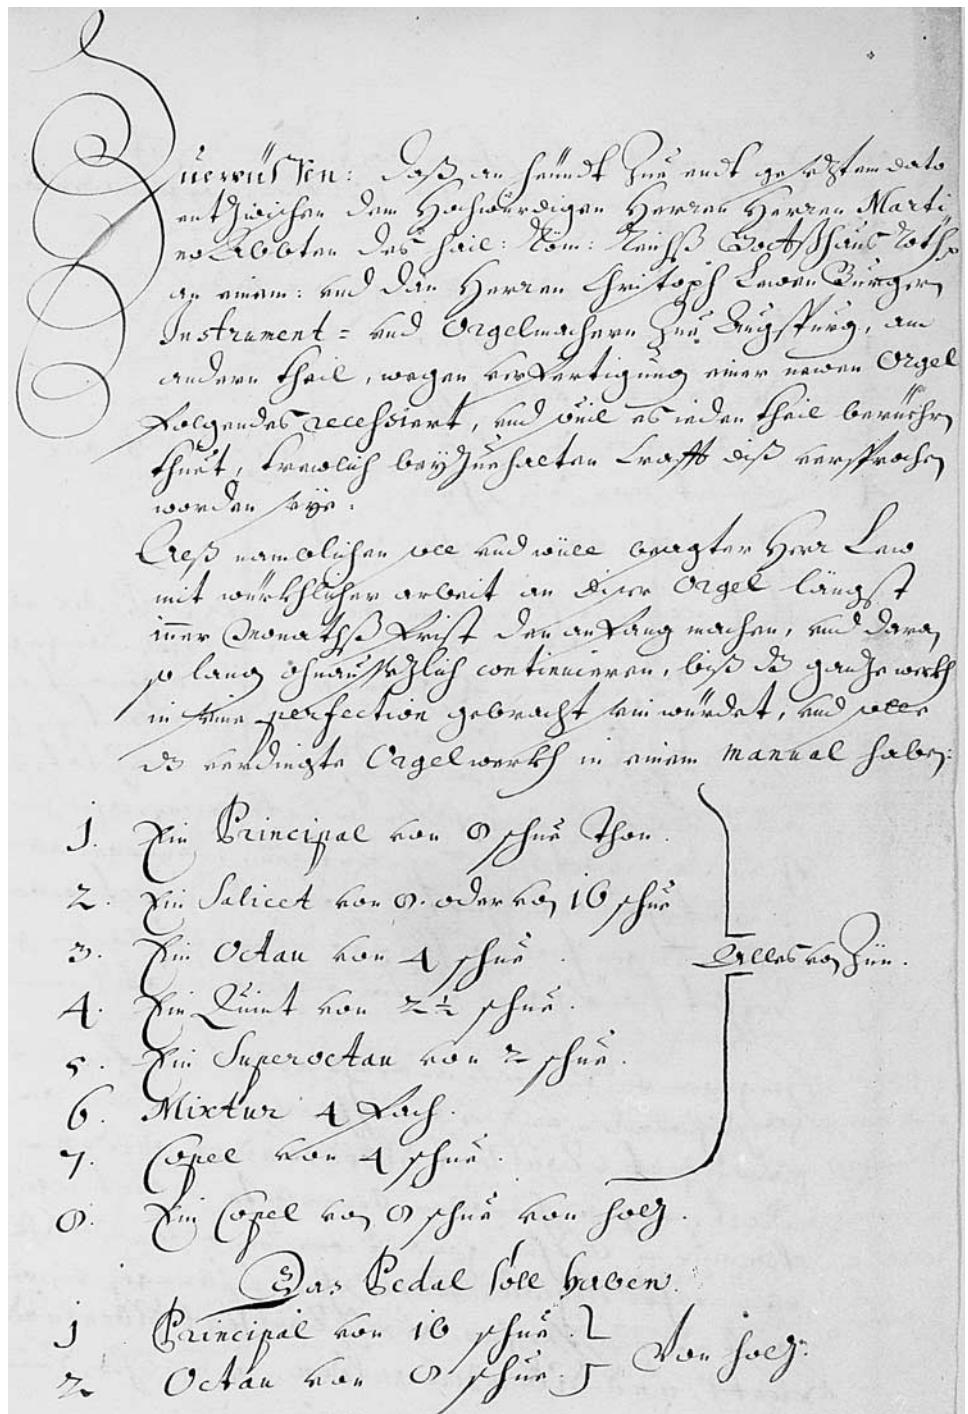 Zue wüssen: daß an heündt Zue endt gesetztem dato
entzwischen dem Hochwürdigen Herren Herren Marti
no Abbten des heil: Röm: Reichß Gottßhaus Roth p
an einem: vnd dan Herren Christoph Lewen Burgern
Instrument= vnd Orgelmachern Zue Augspurg, am
andern theil, wegen verfertigung einer newen Orgel
folgendes recessiert, vnd vill es ieden theil berüehrn
thuet, trewlich beyzuehalten crafft diß versprochen
worden seye.
Alß namblichen soll vnd wüll besagter Herr Lew
mit würkhlicher arbeit an diser Orgel längst
inner Monathß frist den anfang machen, vnd daran
so lang ohnaußsezlich continuieren, biß dz ganze werkh
in seine perfection gebracht sein würdet, vnd solle
dz verdingte Orgelwerkh in einem Manual haben:
1. Ein Principal von 8 schue Thon.
2. Ein Salicet von 8. oder von 16 schue
3. Ein Octau von 4 schue. Alles von Zün.
4. Ein Quint von 2 ½ schue.
5. Ein Superoctau von 2 schue.
6. Mixtur 4 fach.
7. Copel von 4 schue.
8. Ein Copel von 8 schue von holz.
Das Pedal soll haben.
1 Principal von 16 schue. Von holz.
2 Octau von 8 schue.